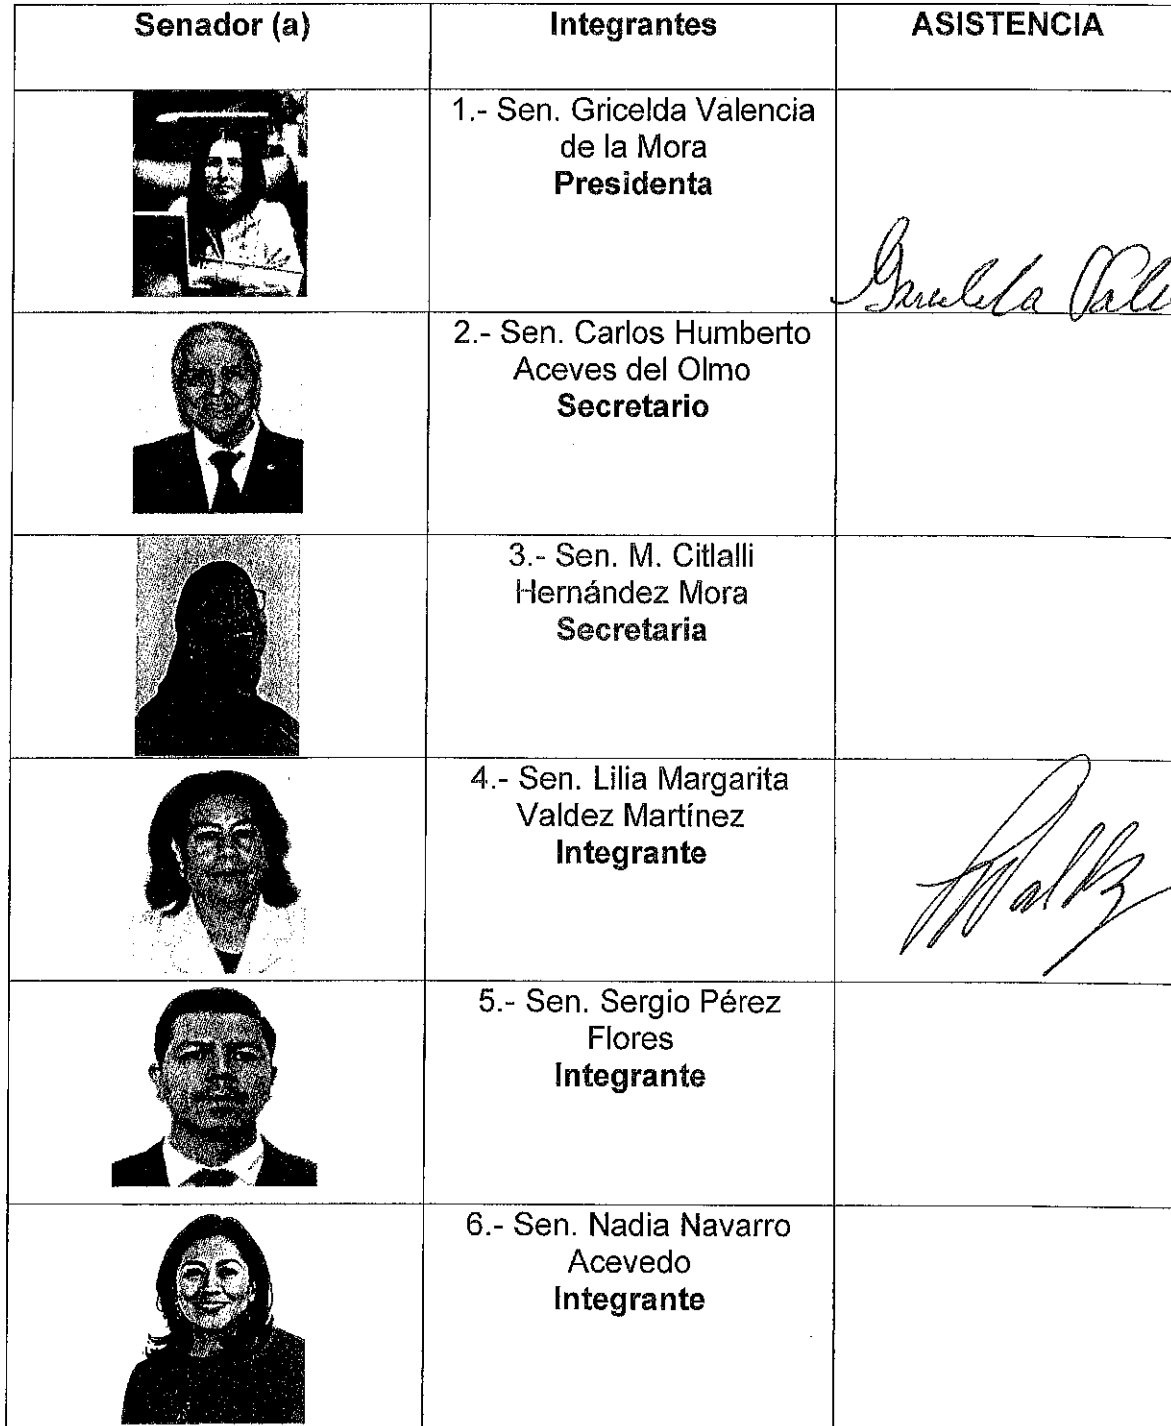 Senador (a)
Integrantes
ASISTENCIA
1.- Sen. Gricelda Valencia
de la Mora
Presidenta
2.- Sen. Carlos Humberto
Aceves del Olmo
Secretario
3.- Sen. M. Citlalli
Hernández Mora
Secretaria
4.- Sen. Lilia Margarita
Valdez Martínez
Integrante
5.- Sen. Sergio Pérez
Flores
Integrante
6.- Sen. Nadia Navarro
Acevedo
Integrante